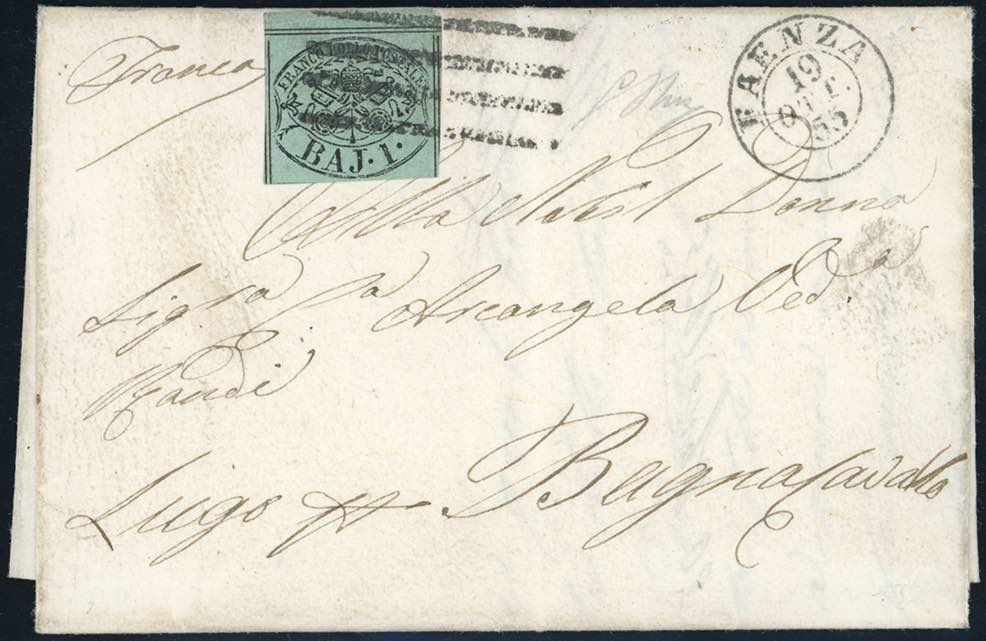 Franca
FRANCO BOLLO POSTALE
BAJ. 1.
FAENZA
19
55
Alla Nobil Donna
Sigra Arcangela Ved.a
Randi
Lugo Bagnacavallo